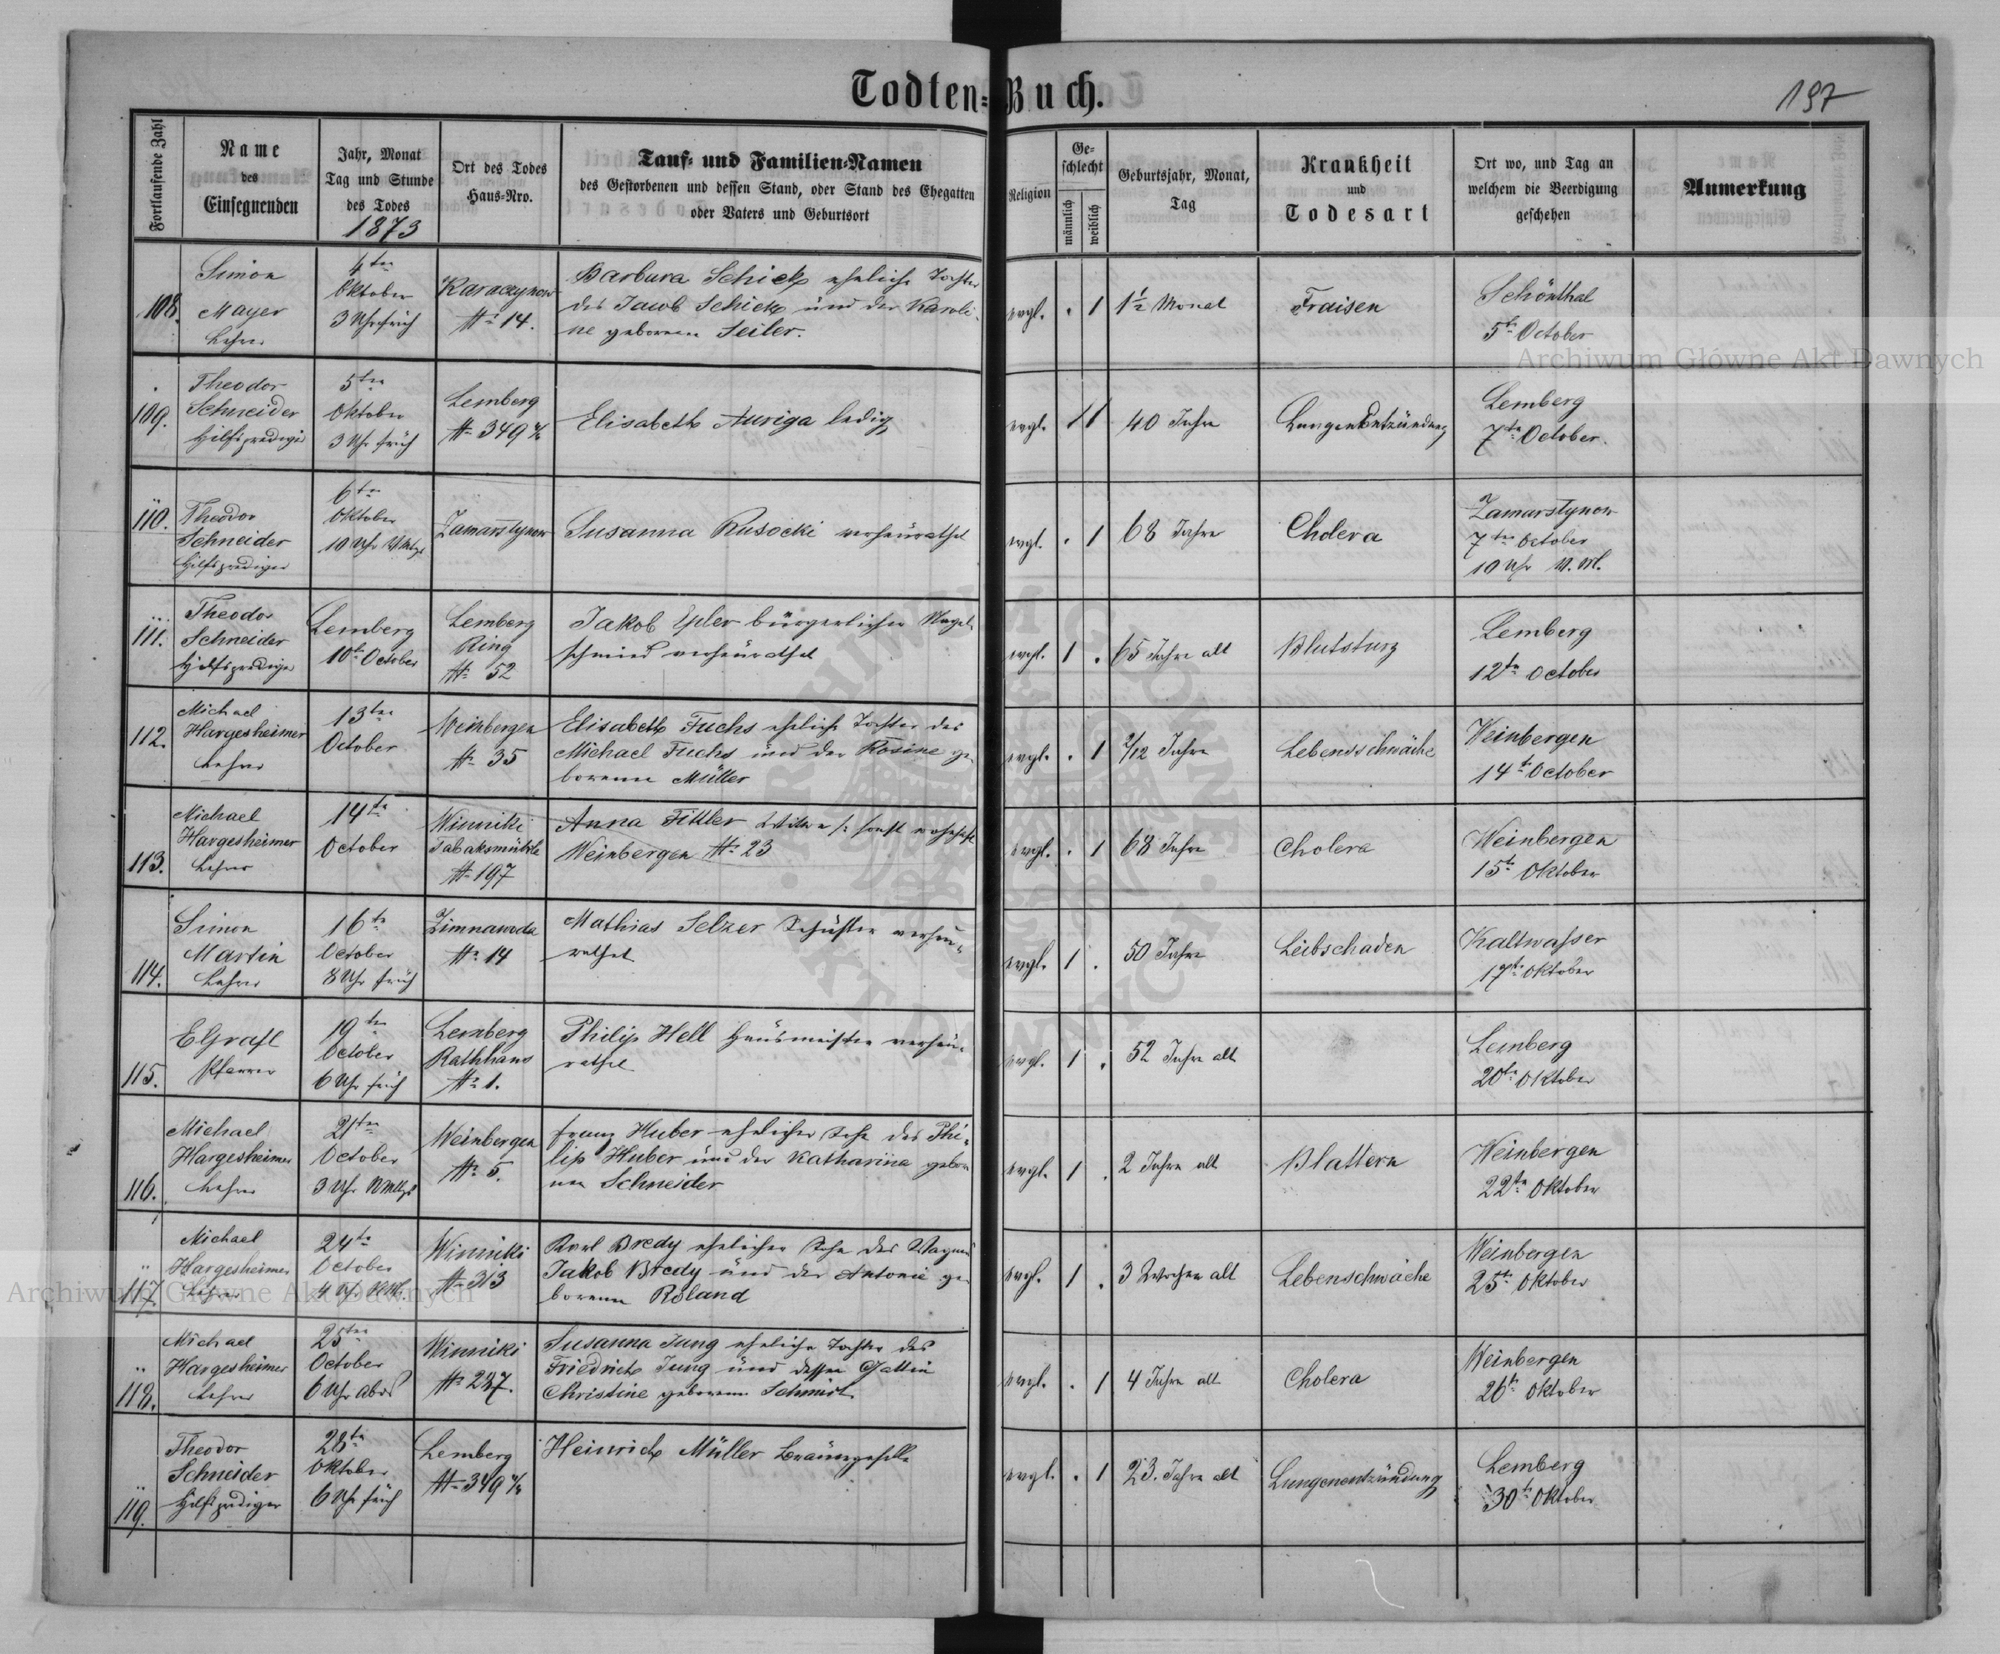 Todten-Buch.
197
Fortlaufende Zahl
Name
des
Einsegnenden
Jahr, Monat
Tag und Stunde
des Todes
1873
Ort des Todes
Haus-Nro.
Tauf- und Familien-Namen
des Gestorbenen und dessen Stand, oder Stand des Ehegatten
oder Vaters und Geburtsort
Religion
Ge-
schlecht
männlich
weiblich
Geburtsjahr, Monat,
Tag
Krankheit
und
Todesart
Ort wo, und Tag an
welchem die Beerdigung
geschehen
Anmerkung
108.
Simon
Mayer
Lehrer
4ten
Oktober
3 Uhr früh
Karaczynow
No 14.
Barbara Schick eheliche Tochter
des Jacob Schick und der Karoli-
ne geborenen Seiler.
evgl.
1
1½ Monat
Fraisen
Schönthal
5te October
109.
Theodor
Schneider
Hilfsprediger
5ten
Oktober
3 Uhr früh
Lemberg
No 349 4/4
Elisabeth Auriga ledig
evgl.
1
40 Jahre
Lungenentzündung
Lemberg
7te October.
110.
Theodor
Schneider
Hilfsprediger
6ten
Oktober
10 Uhr VMtgs
Zamarstynow
Susanna Rusocki verheurathet
evgl.
1
68 Jahre
Cholera
Zamarstynow
7ten October
10 Uhr
111.
Theodor
Schneider
Hilfsprediger
Lemberg
10te October
Lemberg
Ring
No 52
Jakob Epler bürgerlicher Nagel-
schmied verheurathet
evgl.
1
65 Jahre alt
Blutsturz
Lemberg
12ten October
112.
Michael
Hargesheimer
Lehrer
13ten
October
Weinbergen
No 35
Elisabeth Fuchs eheliche Tochter des
Michael Fuchs und der Rosine ge-
borenen Müller
evgl.
1
/12 Jahre
Lebensschwäche
Weinbergen
14te October
113.
Michael
Hargesheimer
Lehrer
14te
October
Winniki
Tabaksmühle
No 197
Anna Fittler Witwe /: sonst wohnhaft
Weinbergen No 23
evgl.
1
68 Jahre
Cholera
Weinbergen
15te Oktober
114.
Simon
Martin
Lehrer
16te
October
8 Uhr früh
Zimnawoda
No 14
Mathias Selzer Schuster verheu-
rathet
evgl.
1
50 Jahre
Leibschaden
Kaltwasser
17te Oktober
115.
EGrafl
Pfarrer
19ten
October
6 Uhr früh
Lemberg
Rathhaus
No 1.
Philip Hell Hausmeister verheu-
rathet
evgl.
1
52 Jahre alt
Lemberg
20te Oktober
116.
Michael
Hargesheimer
Lehrer
21ten
October
3 Uhr NMttgs
Weinbergen
No 5.
Franz Huber ehelicher Sohn des Phi-
lip Huber und der Katharina gebore
nen Schneider
evgl.
1
2 Jahre alt
Blattern
Weinbergen
22te Oktober
117.
Michael
Hargesheimer
Lehrer
24te
October
4 Uhr NM.
Winniki
No 313
Karl Bredy ehelicher Sohn des Wagners
Jakob Bredy und der Antonie ge-
borenen Roland
evgl.
1
3 Wochen alt
Lebenschwäche
Weinbergen
25te Oktober
118.
Michael
Hargesheimer
Lehrer
25ten
October
6 Uhr abds
Winniki
No 237.
Susanna Jung eheliche Tochter des
Friedrich Jung und dessen Gattin
Christine geborenen Schmidt.
evgl.
1
4 Jahre alt
Cholera
Weinbergen
26te Oktober
119.
Theodor
Schneider
Hilfsprediger
28te
Oktober
6 Uhr früh
Lemberg
No 349 4/4
Heinrich Müller Bräuergeselle
evgl.
1
23. Jahre alt
Lungenentzündung
Lemberg
30te Oktober
Archiwum Główne Akt Dawnych
Archiwum Główne Akt Dawnych
ARCHIWUM GŁÓWNE AKT DAWNYCH